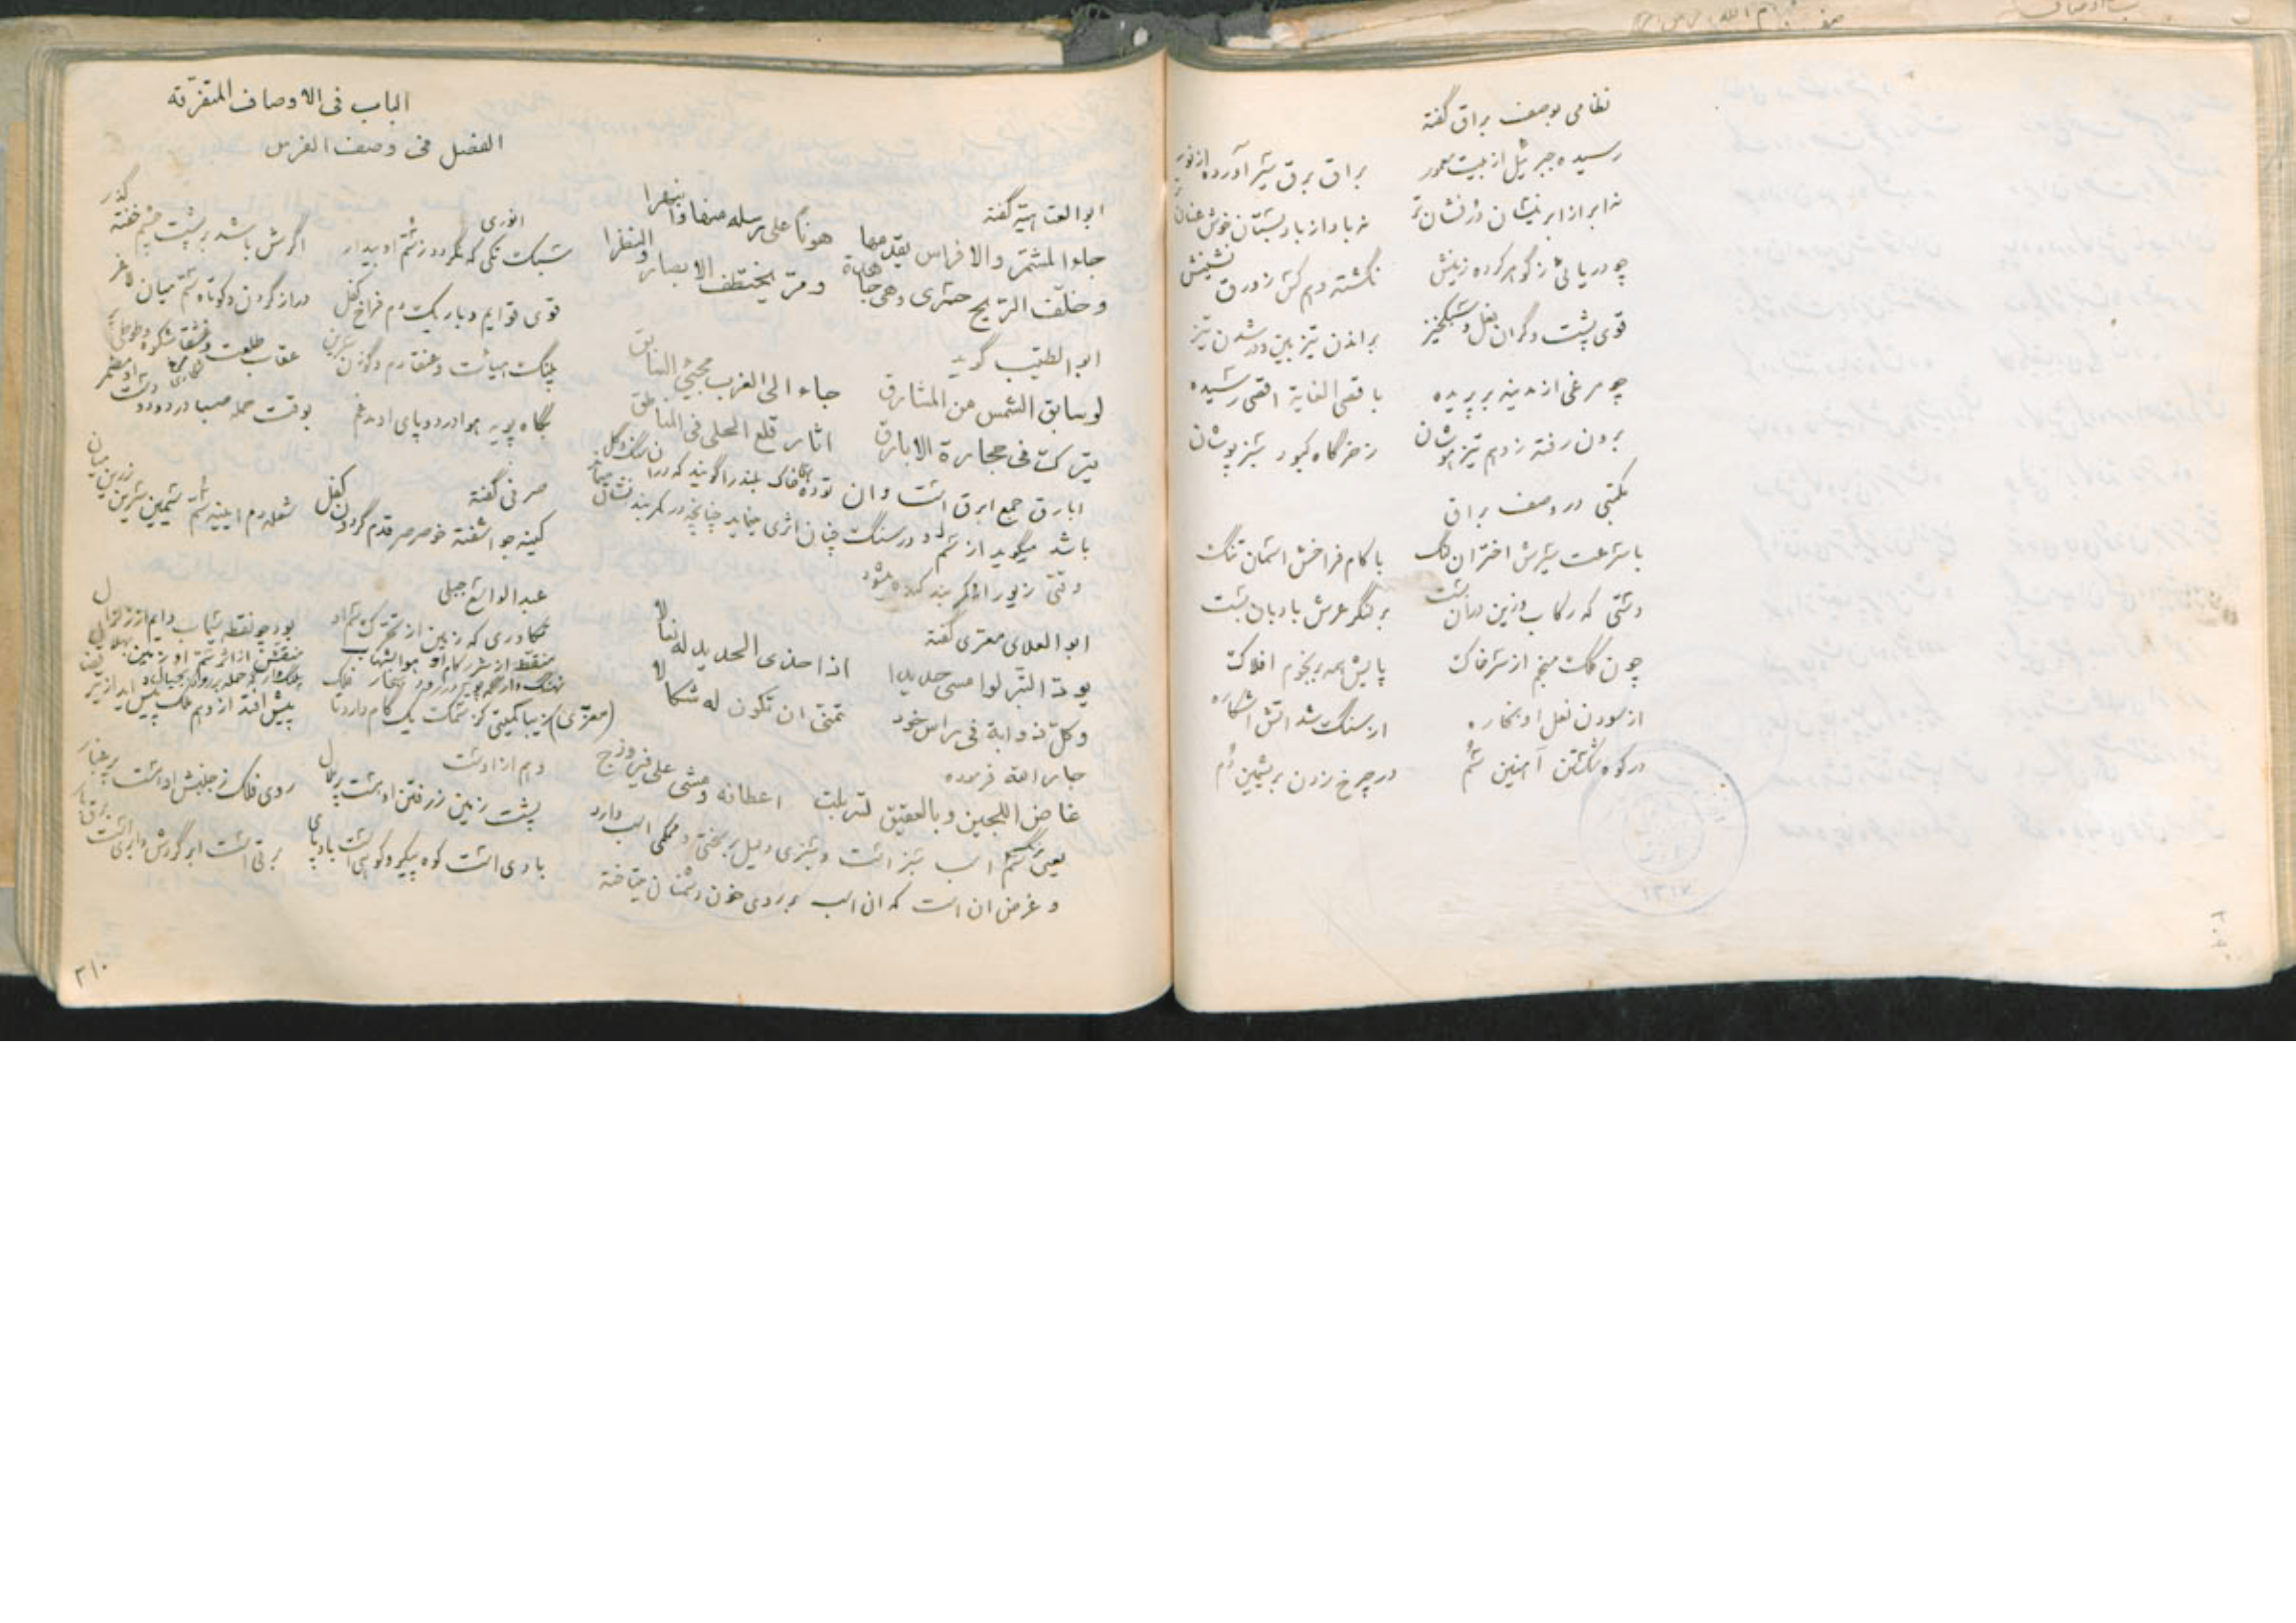 نظامی بوصف براق گفته
رسیده جبرئیل از بیت معمور براق برق سیر آورده از نور
نه ابر از ابر نیسان درفشان تر نه باد از باد بستان خوش عنان تر
چو دریائی ز گوهر کرده زینش نگشته وهم کس زورق نشینش
قوی پشت و گران نعل و سبکخیز براندن تیز بین و در شدن تیز
چو مرغی از مدینه بر پریده باقصی الغایة اقصی رسیده
برون رفته ز وهم تیزهوشان ز خرگاه کبود سبزپوشان
مکتبی در وصف براق
با سرعت سیرش اختران لنگ با کام فراخش اسمان تنگ
دستی که رکاب و زین در آن بست بر لنگر عرش بادبان بست
چون کلک منجم از سر خاک پایش همه بر نجوم افلاک
از سودن نعل او بخاره از سنگ شد اتش اشکاره
در کوه شکستن آهنین سُم در چرخ زدن بریشمین دُم
الباب فی الاوصاف المتفرّقه
الفصل فی وصف الفرس
ابوالعتاهیه گفته
جاء المشمّر والافراس یقدمها هوناً علی رسله منها وما انبهرا
وخلّف الرّیح حسری وهی جاهدة ومرّ یختطف الابصار والنظرا
ابوالطیّب گوید
لو سابق الشمس من المشارق جاء الی الغرب مجیئ السابق
یترک فی حجارة الابارق اثار قلع الحلی فی المناطق
ابارق جمع ابرق است و ان توده خاک بلند را گویند که در ان سنگ و گل
باشد میگوید از سم او در سنگ چنان اثری مینماید چنانچه در کمربند نشان
وقتی زیور از کمربند کنده شود
ابوالعلای معرّی گفته
یودّ التّبر لو امسی حدیدا اذا حذی الحدید له نعالا
وکلّ ذوابة فی راس خود تمنّی ان تکون له شکالا
جار الله فرموده
غاض اللجین وبالعقیق لتربلت اعطافه ومشی علی فیروزج
یعنی رنگ سم اسب سبز است و سبزی دلیل بر سختی و محکمی اسب دارد
و غرض ان است که ان اسب بر روی خون دشمنان میتاخته
انوری
سبک تکی که نگردد ز سم او بیدار اگرش باشد بر پشت چشم خفته گذر
قوی قوایم و باریک دم فراخ کفل دراز گردن و کوتاه سم میان لاغر
پلنگ هیأت و عنقا دم و گوزن عرین عقاب طلعت و عنقا شکوه و طوطی پر
بگاه پویه هوا در دو پای او مدغم بوقت حمله صبا در دو دست او مضمر
صرفی گفته
کینه‌جو اشفته خو صرصر قدم گردون کفل شعله دم ایینه سم سیمین سرین زرین میان
عبدالواسع جبلی
تکاوری که زمین از تحرک سم او بود چو نقطه سیماب دایم از زلزال
منقط از شرر کام او هوا بشهاب منقش از اثر سم او زمین بهلال
نهنگ وار گه پویه در رود ببحار پلنگ وار گه حمله بر رود بجبال
(معزّی) زیبا کمیتی کز سمک یک کام دارد تا فلک پیش افتد از وهم ملک پیش اید از تیر قضا
و هم از اوست
پشت زمین ز رفتن او هست پر هلال روی فلک ز جنبش او است پر غبار
بادی است کوه پیکر و کوهی است باد پای برقی است ابر گردش و ابری است برق سار
۳۱۰